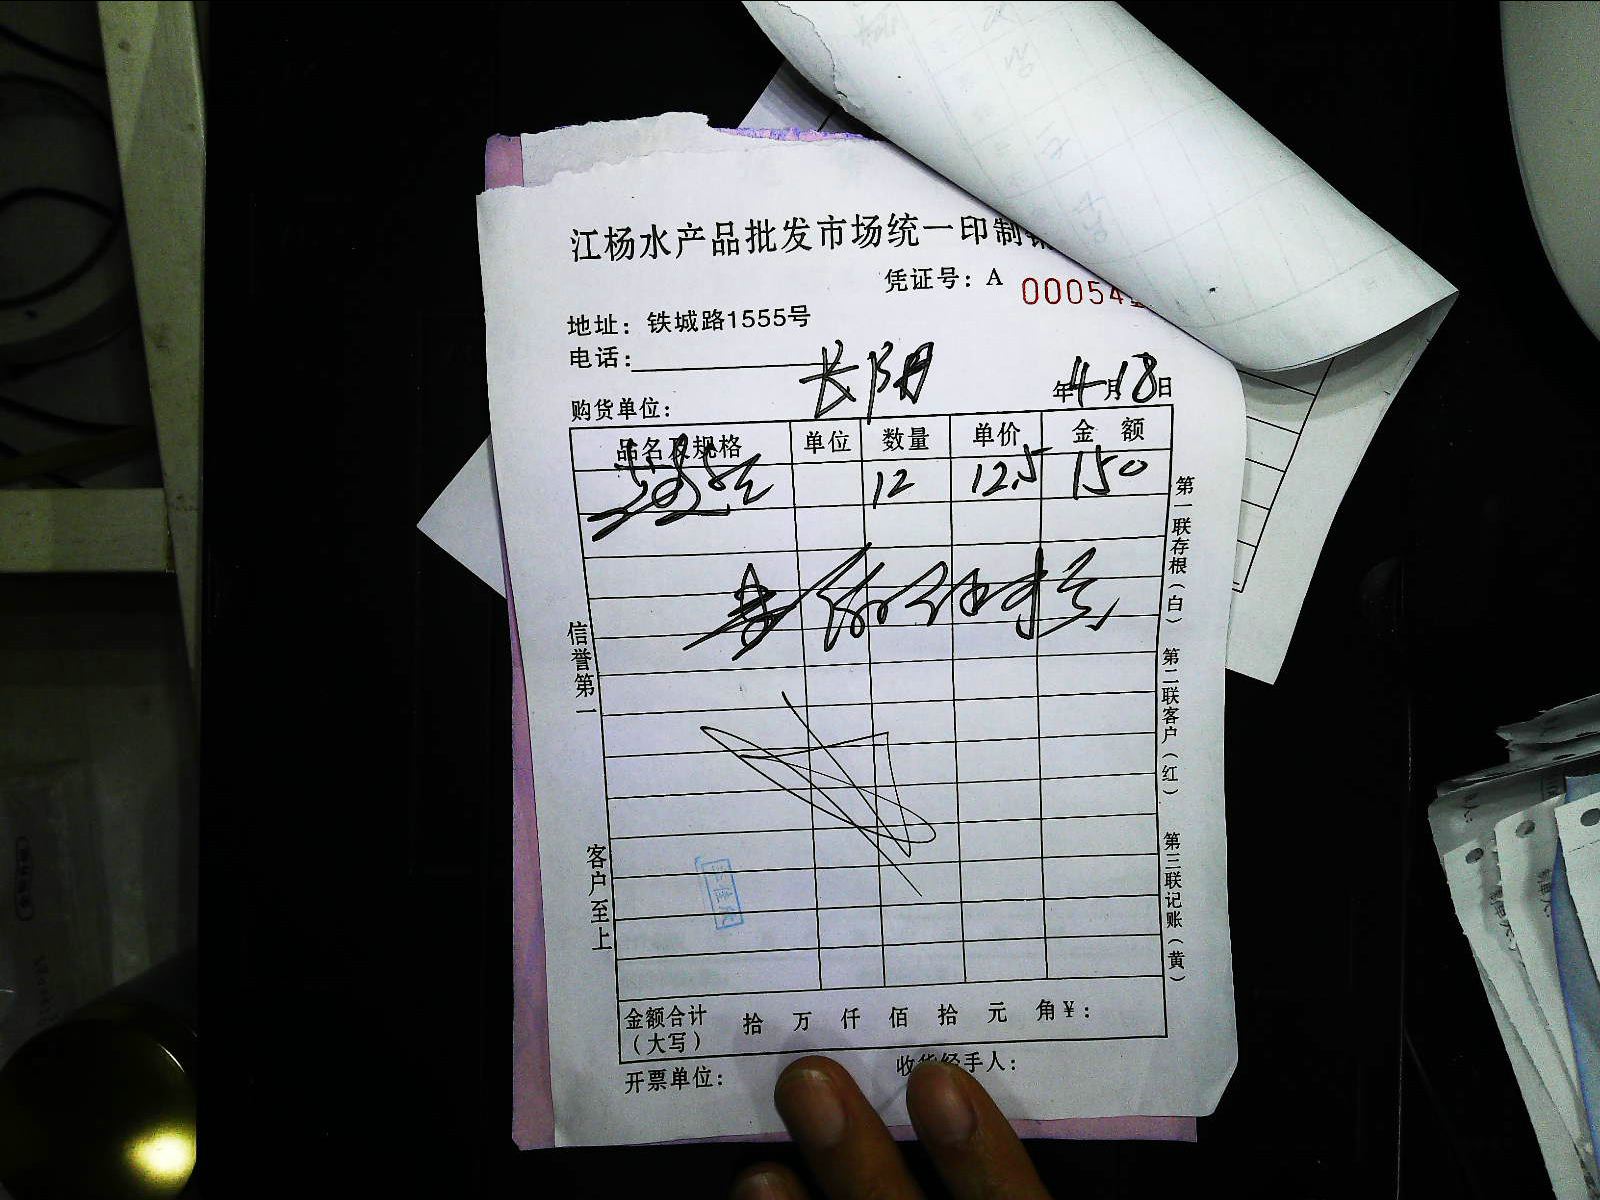 江杨水产品批发市场统一印制
凭证号：A 00054
地址：铁城路1555号
电话：
长阳
购货单位： 年4月18日
品名及规格 单位 数量 单价 金额
12 12.5 150
信誉第一
客户至上
第一联存根（白） 第二联客户（红） 第三联记账（黄）
金额合计（大写） 拾 万 仟 佰 拾 元 角 ¥：
开票单位： 收货经手人：